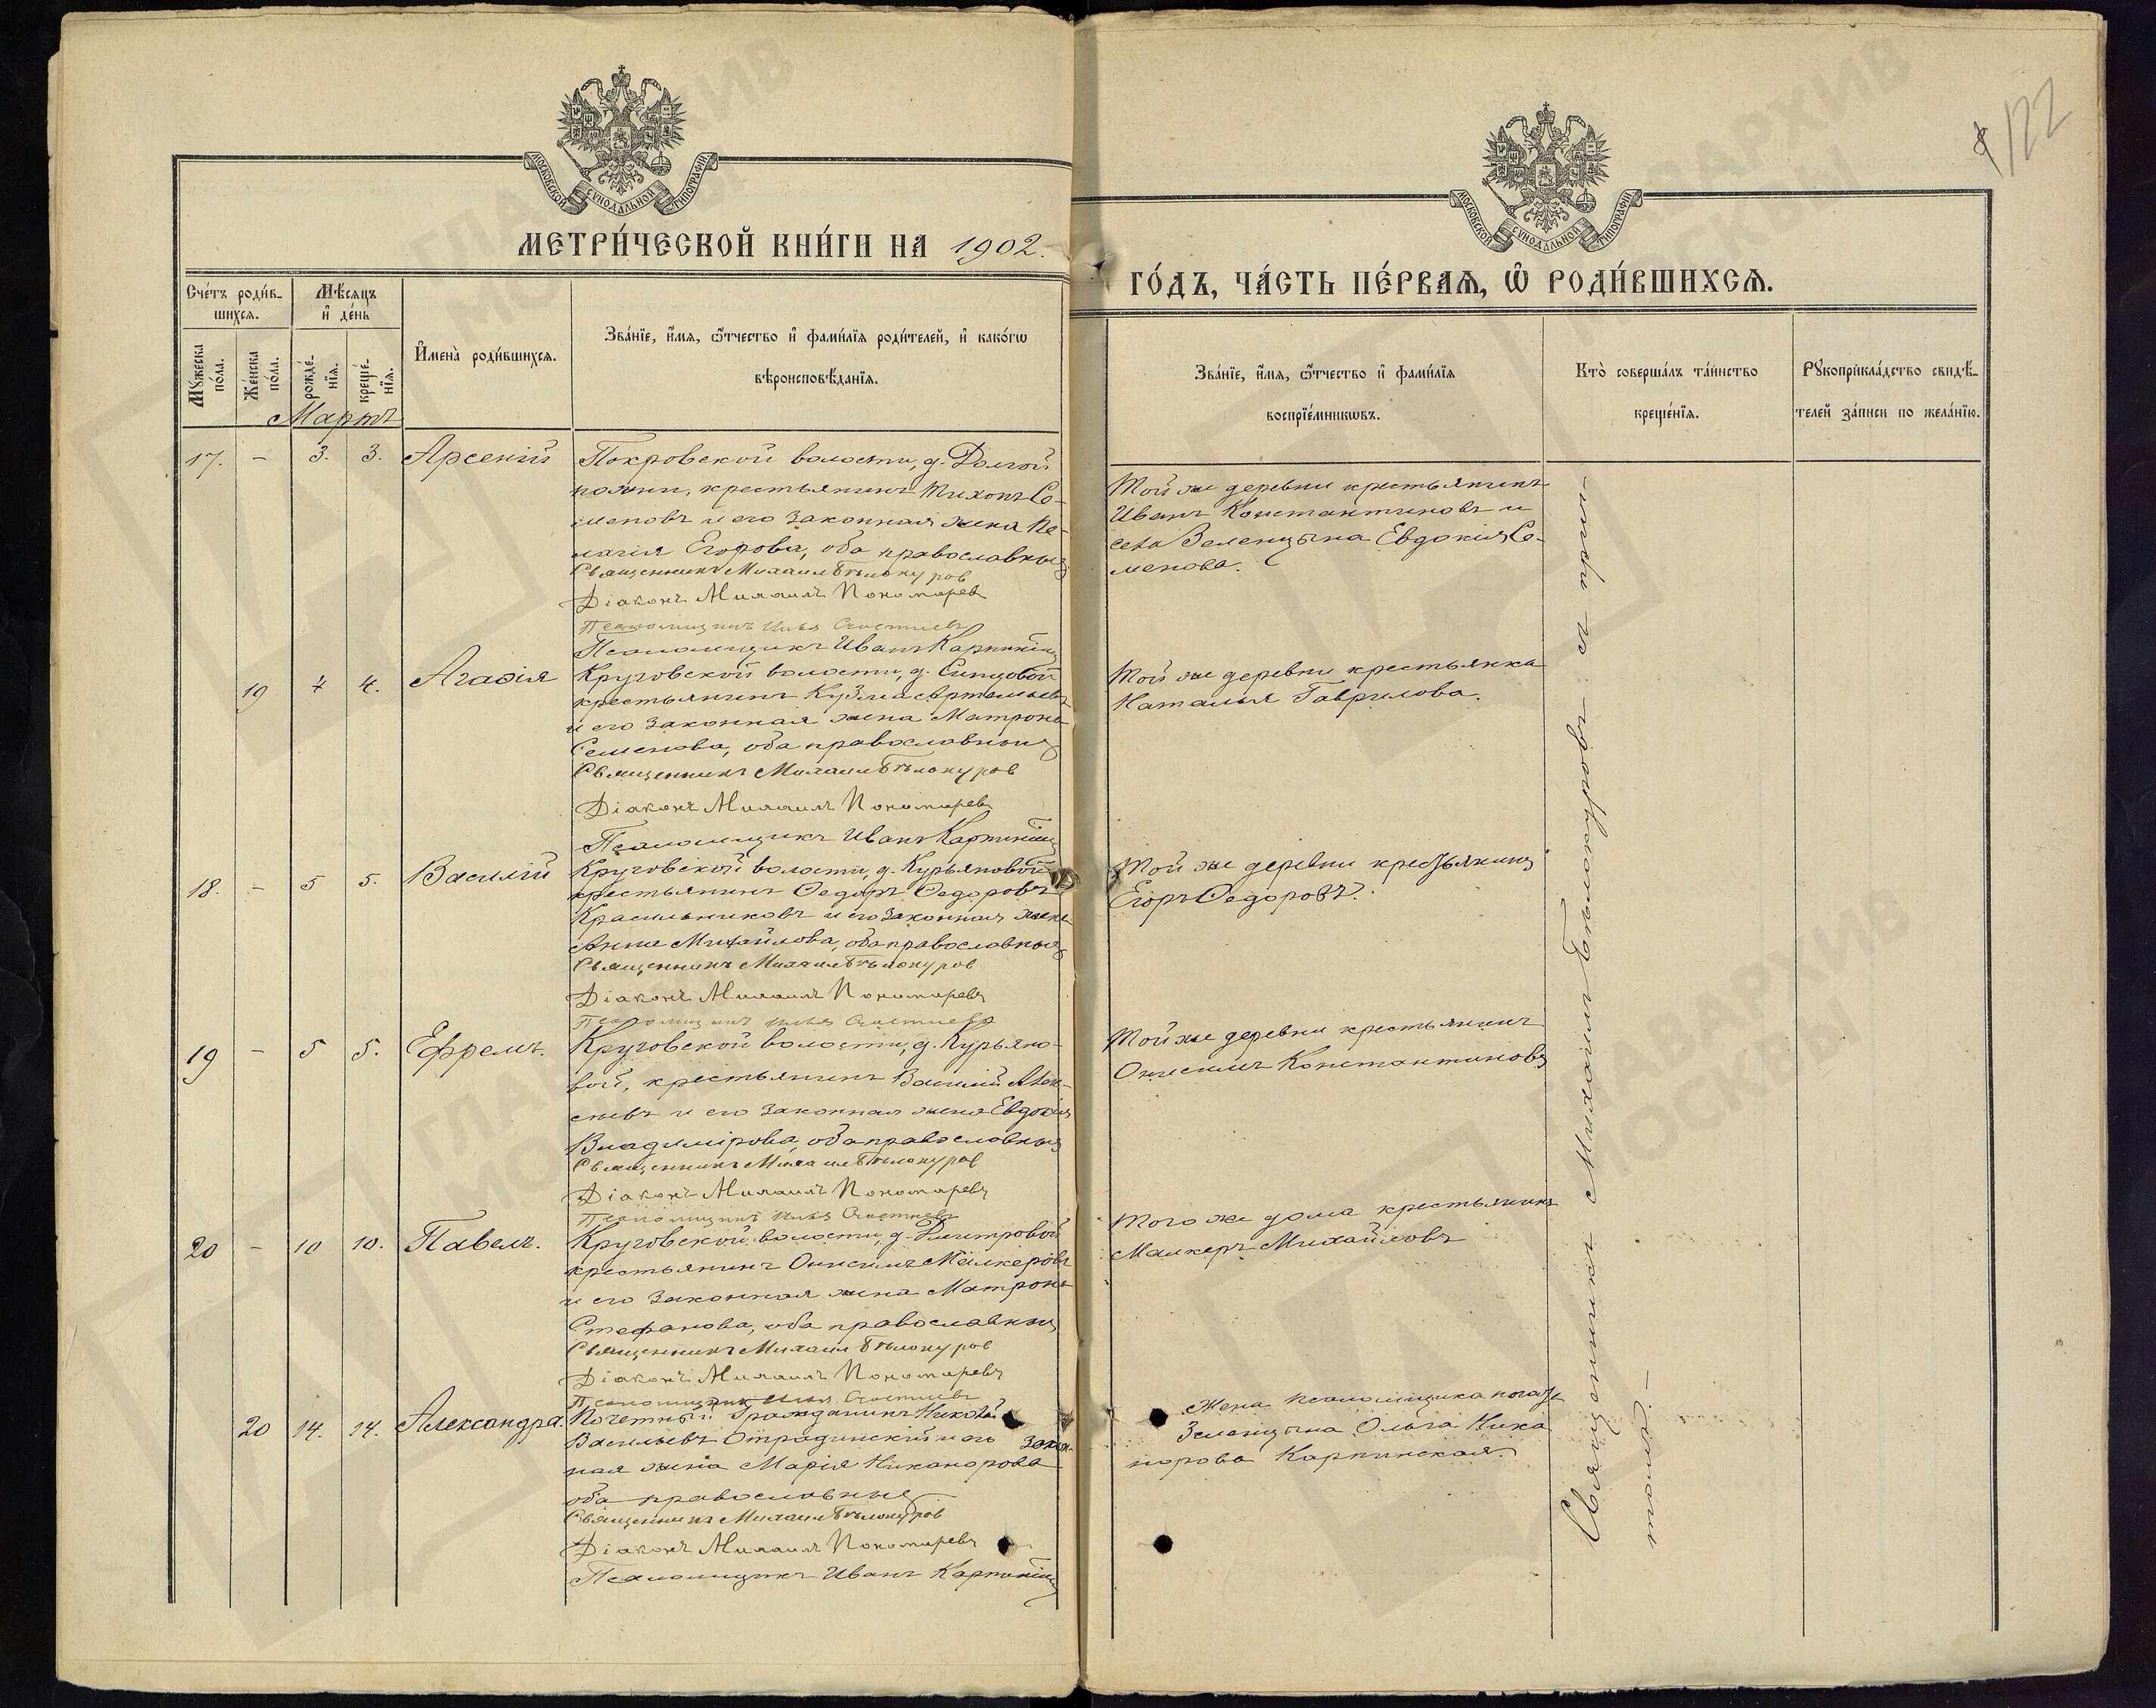 122
МОСКОВСКОЙ СѴНОДАЛЬНОЙ ТИПОГРАФІИ
МОСКОВСКОЙ СѴНОДАЛЬНОЙ ТИПОГРАФІИ
МЕТРИ́ЧЕСКОЙ КНИ́ГИ НА 1902.
ГО́ДЪ, ЧА́СТЬ ПЕ́РВАѦ, Ѽ РОДИ́ВШИХСѦ.
Сче́тъ роди́в-
шихсѧ.
Мѣ́сѧцъ
и҆ де́нь
Мꙋ́жеска
по́ла.
Же́нска
по́ла.
рожде́-
нїѧ.
креще́-
нїѧ.
И҆мена̀ роди́вшихсѧ.
Зва́нїе, и҆́мѧ, ѻ҆́тчество и҆ фами́лїѧ роди́телей, и҆ како́гѡ
вѣроисповѣ́данїѧ.
Зва́нїе, и҆́мѧ, ѻ҆́тчество и҆ фами́лїѧ
воспрїе́мникѡвъ.
Кто̀ соверша́лъ та́инство
креще́нїѧ.
Рꙋкоприкла́дство свидѣ́-
телей за́писи по жела́нїю.
Мартъ
17. - 3. 3. Арсеній
Покровской волости, д. Долгой
поляни, крестьянинъ Тихонъ Се-
меновъ и его законная жена Пе-
лагія Егорова, оба православныя
Священникъ Михаилъ Бѣлокуров
Діаконъ Михаилъ Пономаревъ
Псаломщикъ Илья Счастневъ
Псаломщикъ Иванъ Карпинскій
Той же деревни крестьянинъ
Иванъ Константиновъ и
села Зеленцына Евдокія Се-
менова.
19 4 4. Агафія
Круговской волости, д. Синцовой
крестьянинъ Кузма Артемьевъ
и его законная жена Матрона
Семенова, оба православныя
Священникъ Михаилъ Бѣлокуров
Діаконъ Михаилъ Пономаревъ
Псаломщикъ Иванъ Карпинскій
Той же деревни крестьянка
Наталья Гаврилова.
18. - 5 5. Василій
Круговской волости, д. Курьяновой
крестьянинъ Ѳедоръ Ѳедоровъ
Красильниковъ и его законная жена
Анна Михайлова, оба православныя
Священникъ Михаилъ Бѣлокуров
Діаконъ Михаилъ Пономаревъ
Псаломщикъ Илья Счастневъ
Той же деревни крестьянинъ
Егоръ Ѳедоровъ.
19 - 5 5. Ефремъ.
Круговской волости, д. Курьяно-
вой, крестьянинъ Василій Алек-
сѣевъ и его законная жена Евдокія
Владимірова, оба православныя
Священникъ Михаилъ Бѣлокуров
Діаконъ Михаилъ Пономаревъ
Псаломщикъ Илья Счастневъ
Той же деревни крестьянинъ
Онисимъ Константиновъ
20 - 10 10. Павелъ.
Круговской волости, д. Дмитровой
крестьянинъ Онисимъ Малкеровъ
и его законная жена Матрона
Стефанова, оба православныя
Священникъ Михаилъ Бѣлокуров
Діаконъ Михаилъ Пономаревъ
Псаломщикъ Илья Счастневъ
Того же дома крестьянинъ
Малкеръ Михайловъ
20 14. 14. Александра.
Почетный Гражданинъ Николай
Васильевъ Отрадинскій и его закон-
ная жена Марія Никанорова
оба православныя
Священникъ Михаилъ Бѣлокуров
Діаконъ Михаилъ Пономаревъ
Псаломщикъ Иванъ Карпинскій
Жена псаломщика погоста
Зеленцына Ольга Ника
норова Карпинская.
Священникъ Михаилъ Бѣлокуровъ съ прич-
томъ.
ГЛАВАРХИВ
МОСКВЫ